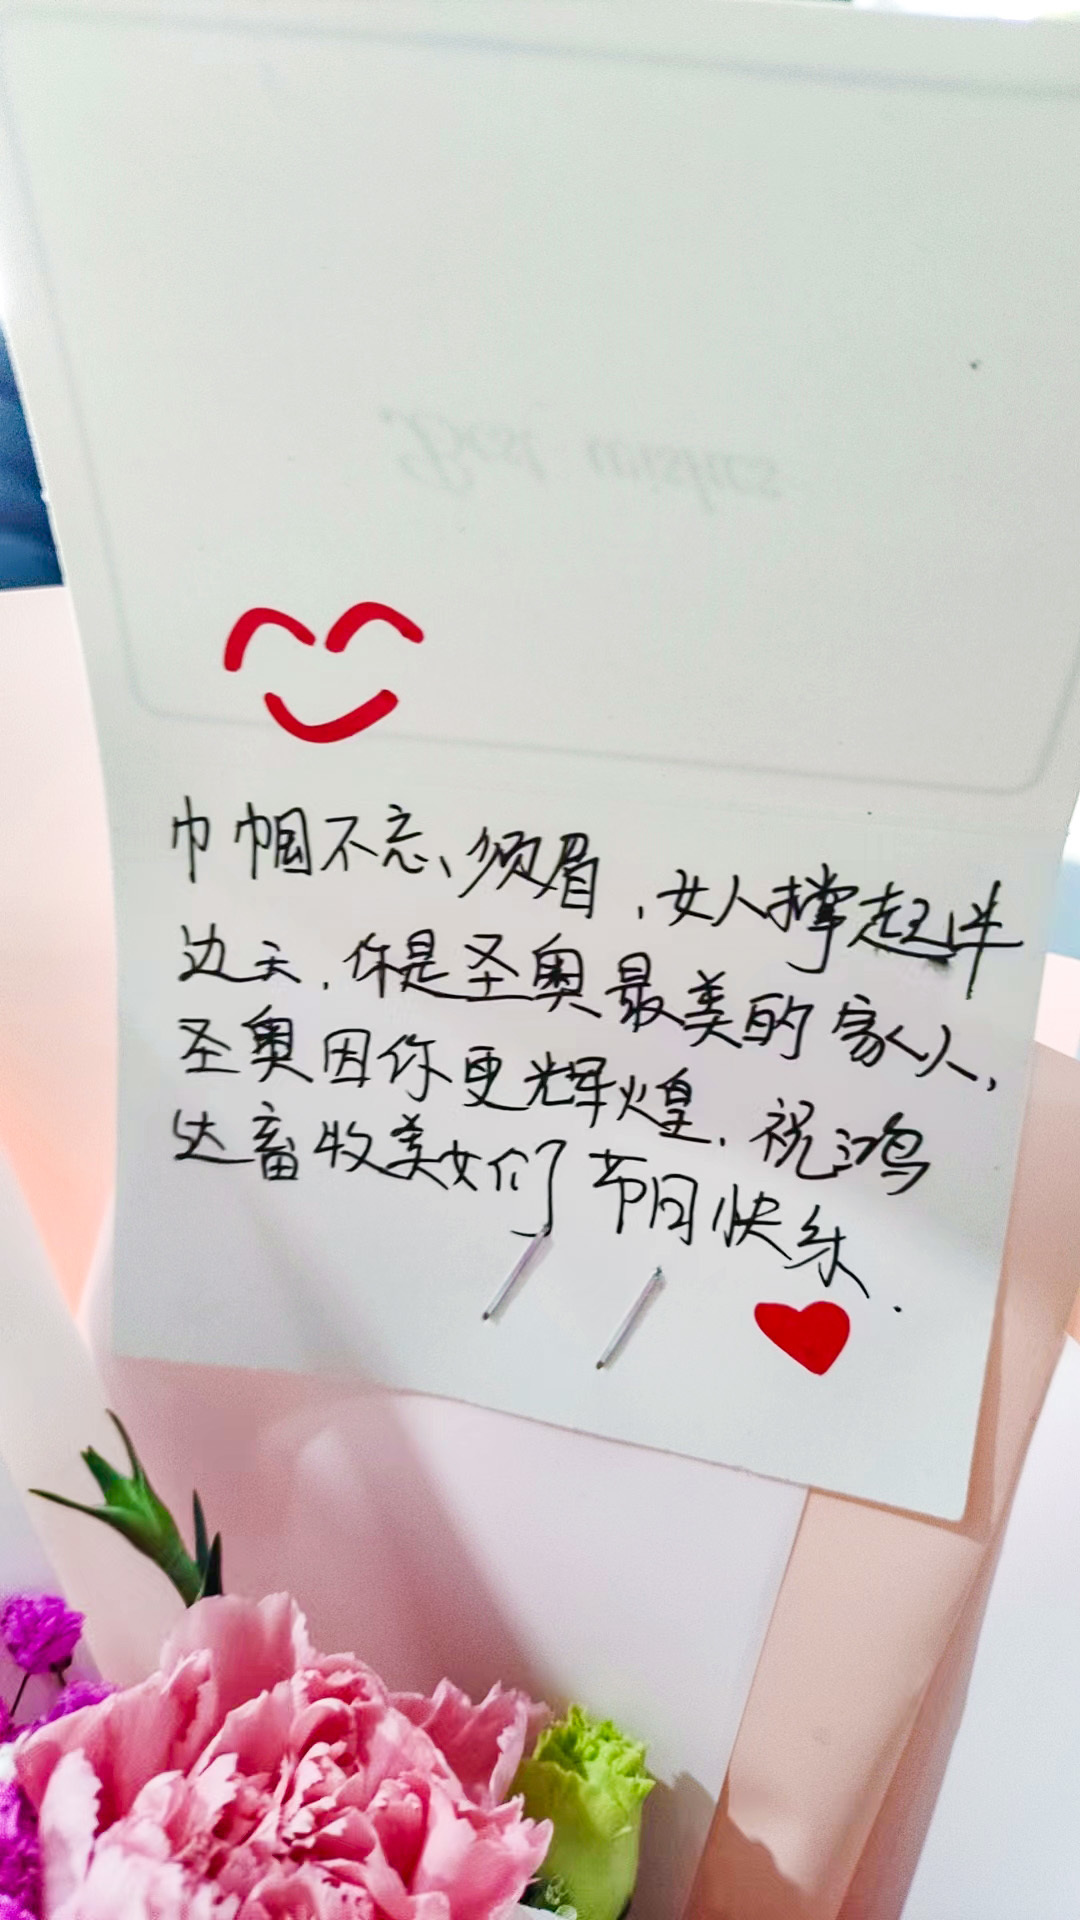 Best wishes
巾帼不忘、须眉，女人撑起半
边天，你是圣奥最美的家人，
圣奥因你更辉煌，祝鸿
达畜牧美女们节日快乐.